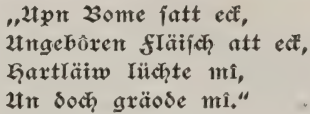 „Upn Bome ſatt eck,
Ungebôren Fläiſch att eck,
Hartläiw lüchte mî,
Un doch gräode mî.“